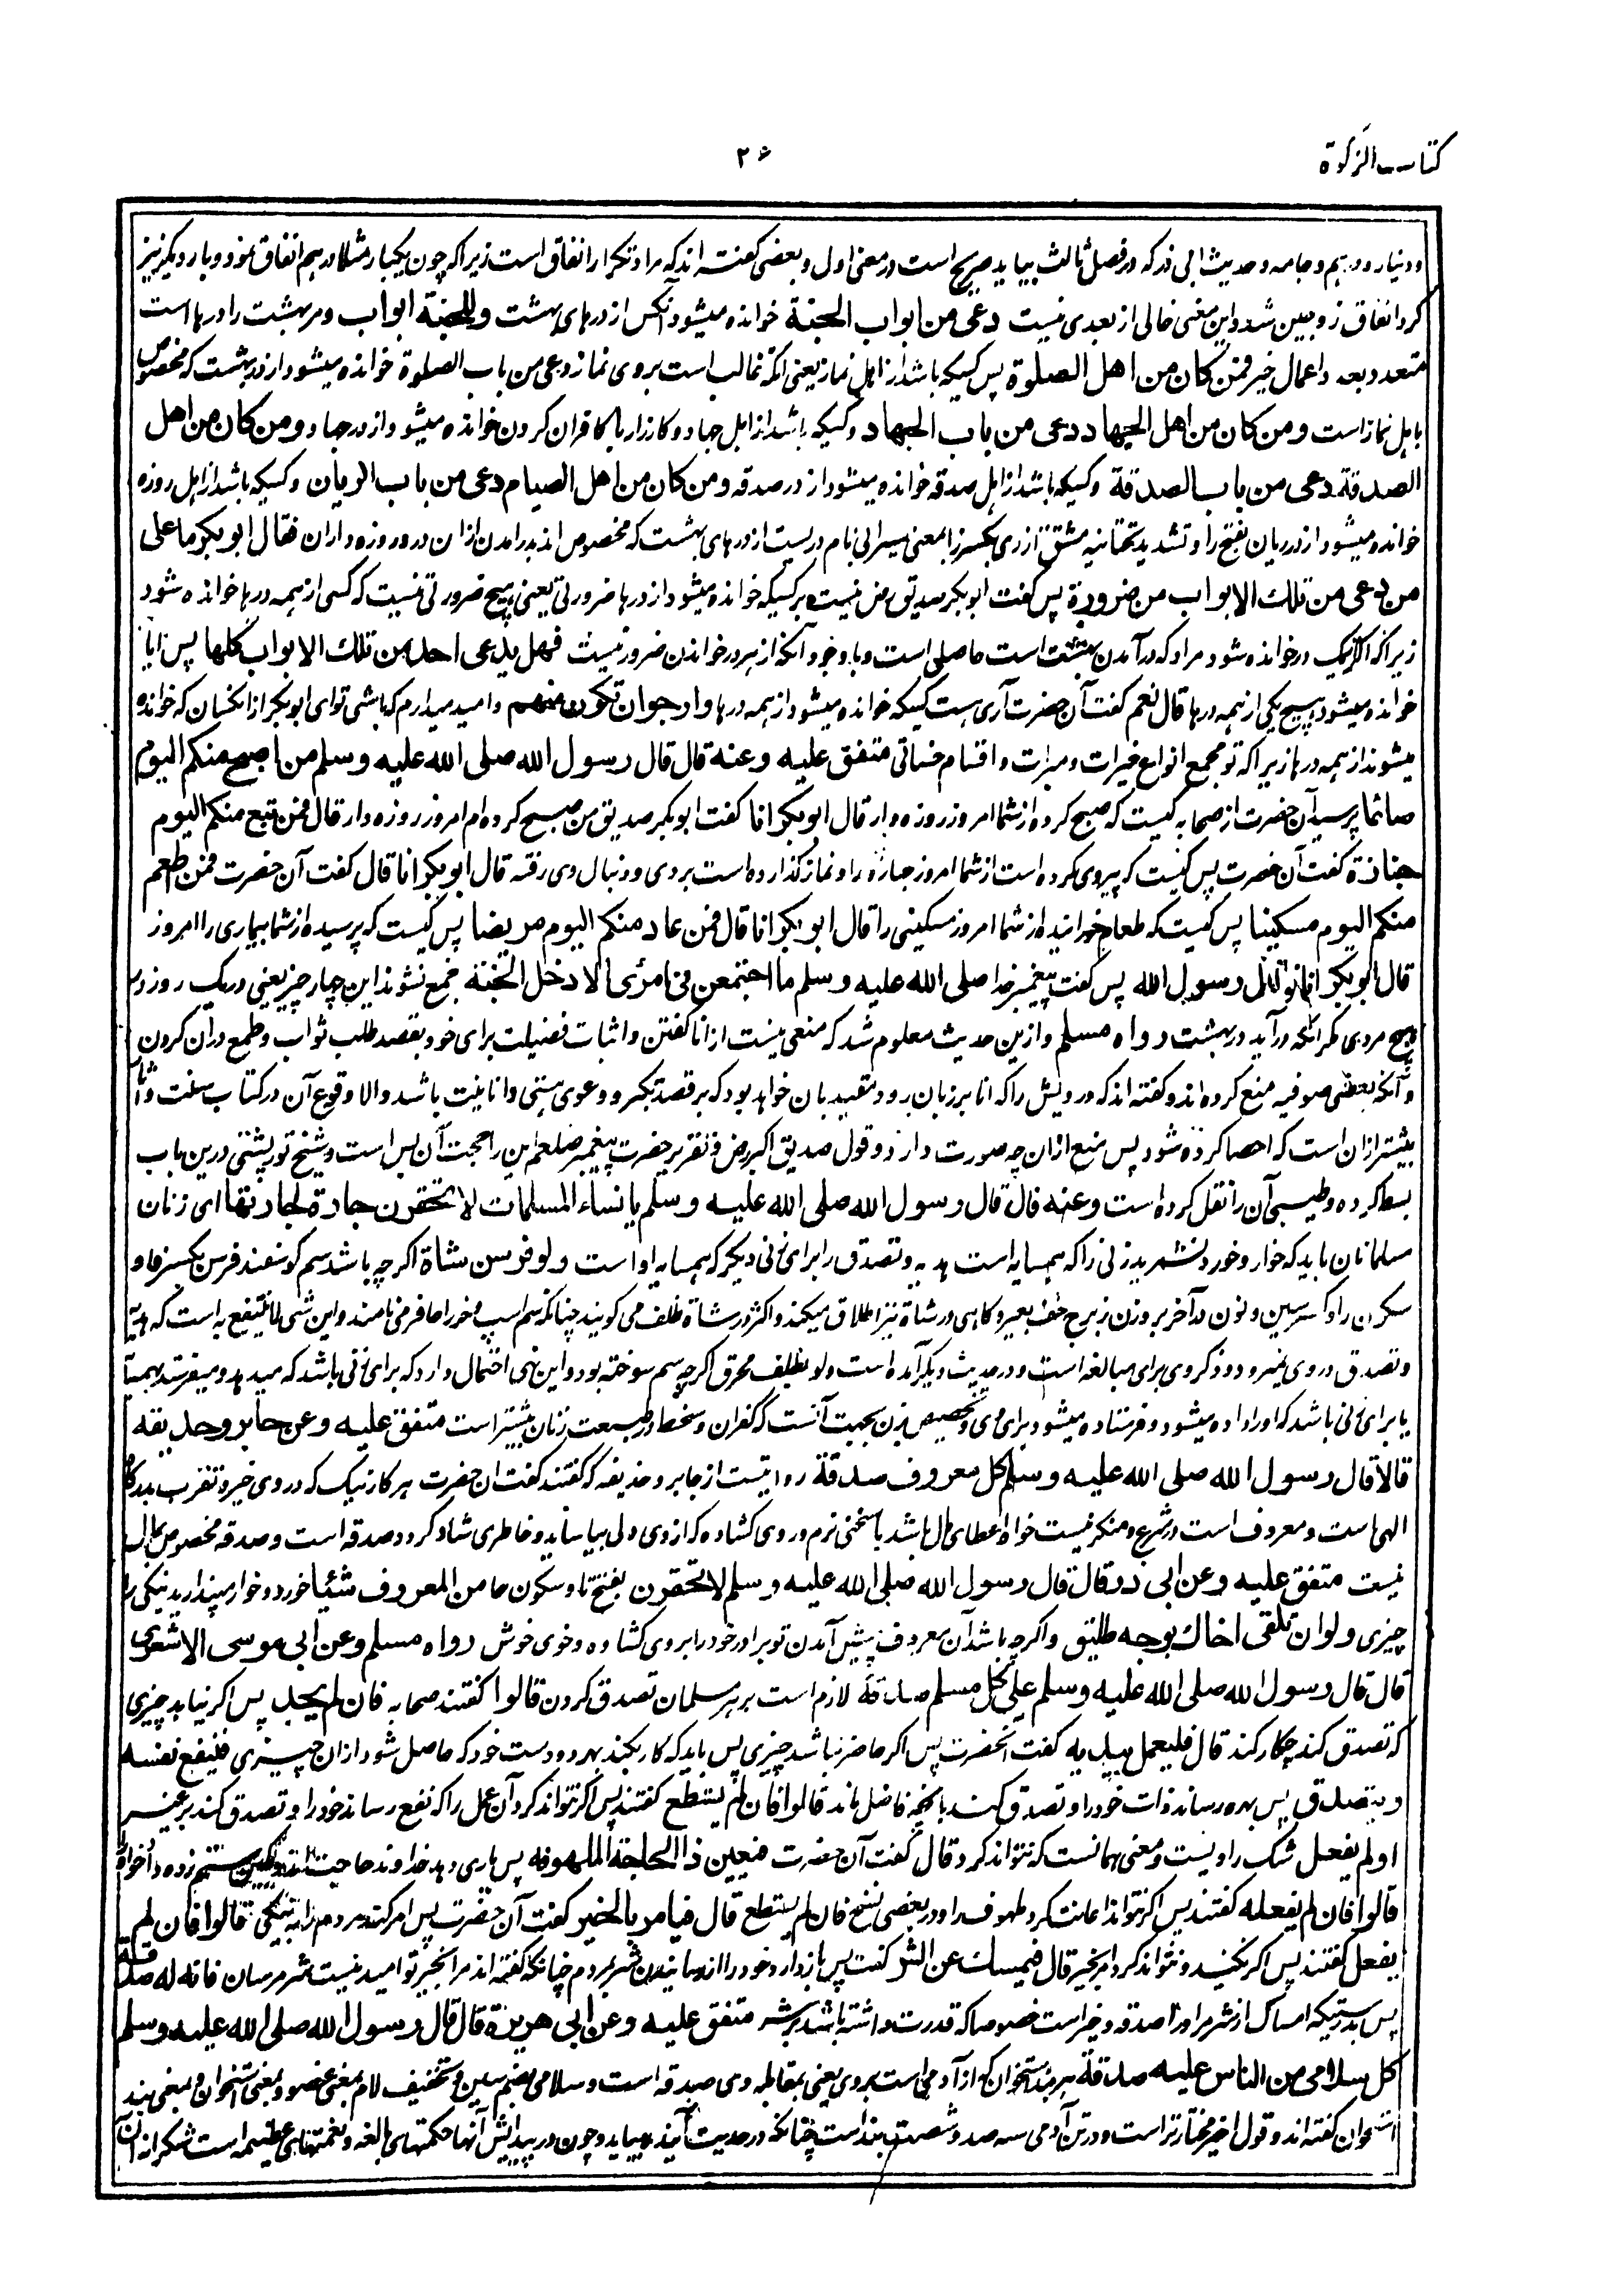 کتاب الزکوة
۲۶
ودینار و درهم و جامه و حدیث ابی ذر که در فصل ثالث بیاید صریح است در معنی اول و بعضی گفته اند که مراد تکرار انفاق است زیرا که چون یکبار مثلا درهم انفاق نمود و بار دیگر نیز
کرد انفاق زوجین شد و این معنی خالی از بعدی نیست دعی من ابواب الجنة خوانده میشود آنکس از درهای بهشت وللجنة ابواب و مر بهشت را درها است
متعدد بعدد اعمال خیر فمن کان من اهل الصلوة پس کسیکه باشد از اهل نماز یعنی آنکه غالب است بروی نماز دعی من باب الصلوة خوانده میشود از در بهشت که مخصوص
باهل نماز است ومن کان من اهل الجهاد دعی من باب الجهاد و کسیکه باشد از اهل جهاد و کارزار با کافران کردن خوانده میشود از در جهاد ومن کان من اهل
الصدقة دعی من باب الصدقة و کسیکه باشد از اهل صدقه خوانده میشود از در صدقه ومن کان من اهل الصیام دعی من باب الریان و کسیکه باشد از اهل روزه
خوانده میشود از در ریان بفتح را و تشدید تحتانیه مشتق از ری بکسر را بمعنی سیرابی نام دریست از درهای بهشت که مخصوص اند بدرامدن ازان در روزه داران فقال ابو بکر ما علی
من دعی من تلک الابواب من ضرورة پس گفت ابو بکر صدیق رض نیست بر کسیکه خوانده میشود از درها ضرورتی یعنی هیچ ضرورتی نیست که کسی از همه درها خوانده شود
زیرا که اگر از یک در خوانده شود مراد که درآمدن بهشت است حاصل است و با وجود آنکه از هر در خواندن ضرور نیست فهل یدعی احد من تلک الابواب کلها پس آیا
خوانده میشود هیچ یکی از همه درها قال نعم گفت آن حضرت آری هست کسیکه خوانده میشود از همه درها وارجو ان تکون منهم و امید میدارم که باشی تو ای ابو بکر از انکسان که خوانده
میشوند از همه درها زیرا که تو مجمع انواع خیرات و مبرات و اقسام حسناتی متفق علیه وعنه قال قال رسول الله صلی الله علیه وسلم من اصبح منکم الیوم
صائما پرسید آن حضرت از صحابه کیست که صبح کرده از شما امروز روزه دار قال ابو بکر انا گفت ابو بکر صدیق من صبح کرده ام امروز روزه دار قال فمن تبع منکم الیوم
جنازة گفت آن حضرت پس کیست که پیروی کرده است از شما امروز جنازه را و نماز گذارده است بروی و دنبال وی رفته قال ابو بکر انا قال گفت آن حضرت فمن اطعم
منکم الیوم مسکینا پس کیست که طعام خورانیده از شما امروز مسکینی را قال ابو بکر انا قال فمن عاد منکم الیوم مریضا پس کیست که پرسیده از شما بیماری را امروز
قال ابو بکر انا فقال رسول الله پس گفت پیغمبر خدا صلی الله علیه وسلم ما اجتمعن فی امرئ الا دخل الجنة جمع نشوند این چهار چیز یعنی در یک روز در
هیچ مردی مگر آنکه درآید در بهشت رواه مسلم و ازین حدیث معلوم شد که منعی نیست از انا گفتن و اثبات فضیلت برای خود بقصد طلب ثواب و طمع دران کردن
و آنکه بعضی صوفیه منع کرده اند و گفته اند که درویش را که انا بر زبان رود مقید بان خواهد بود که بر قصد تکبر و دعوی هستی و انانیت باشد والا وقوع آن در کتاب سنت و آثار
بیشتر ازان است که احصا کرده شود پس منع ازان چه صورت دارد و قول صدیق اکبر رض و تقریر حضرت پیغمبر صلعم این را حجت آن بس است و شیخ تورپشتی درین باب
بسط کرده و طیبی آن را نقل کرده است وعنه قال قال رسول الله صلی الله علیه وسلم یا نساء المسلمات لا تحقرن جارة لجارتها ای زنان
مسلمانان باید که خوار و خورد نشمرید زنی را که همسایه است هدیه و تصدق را برای زنی دیگر که همسایه او است ولو فرسن شاة اگر چه باشد سم گوسفند فرسن بکسر فا و
سکون را و کسر سین و نون در آخر بر وزن زبرج خف بعیر و گاهی در شاة نیز اطلاق میکند و اکثر در شاة ظلف می گویند چنانکه سم اسپ و خر را حافر می نامند و این شی لا ینتفع به است که هدیه
و تصدق در وی نمیرود و ذکر وی برای مبالغه است و در حدیث دیگر آمده است ولو بظلف محرق اگرچه سم سوخته بود و این نهی احتمال دارد که برای زنی باشد که میدهد و میفرستد بهمسایه
یا برای زنی باشد که او را داده میشود و فرستاده میشود برای وی و تخصیص بزن بجهت آنست که کفران و سخط در طبیعت زنان بیشتر است متفق علیه وعن جابر وحذیفه
قالا قال رسول الله صلی الله علیه وسلم کل معروف صدقة روایتست از جابر و حذیفه که گفتند گفت ان حضرت هر کار نیک که در وی خیر و تقرب بدرگاه
الهی است و معروف است در شرع و منکر نیست خواه اعطای مال باشد یا سخنی نرم و روی کشاده که از وی دلی بیاساید و خاطری شاد گردد صدقه است و صدقه مخصوص بمال
نیست متفق علیه وعن ابی ذر قال قال رسول الله صلی الله علیه وسلم لا تحقرن بفتح تا و سکون حا من المعروف شیئا خورد و خوار مپندارید نیکی را
چیزی ولو ان تلقی اخاک بوجه طلیق و اگرچه باشد آن معروف پیش آمدن تو برادر خود را بروی کشاده و خوی خوش رواه مسلم وعن ابی موسی الاشعری
قال قال رسول الله صلی الله علیه وسلم علی کل مسلم صدقة لازم است بر هر مسلمان تصدق کردن قالوا گفتند صحابه فان لم یجد پس اگر نیابد چیزی
که تصدق کند چکار کند قال فلیعمل بیدیه گفت آنحضرت پس اگر حاضر نباشد چیزی پس باید که کار بکند بهر دو دست خود که حاصل شود ازان چیزی فینفع نفسه
ویتصدق پس بهره رساند ذات خود را و تصدق کند بانچه فاضل ماند قالوا فان لم یستطع گفتند پس اگر نتواند کرد آن عمل را که نفع رساند خود را و تصدق کند بر غیر
او لم یفعل شک راویست و معنی همانست که نتواند کرد قال گفت آن حضرت فیعین ذا الحاجة الملهوفه پس یاری دهد خداوند حاجت ستم زده
قالوا فان لم یفعله گفتند پس اگر نتواند اعانت کرد ملهوف را و در بعضی نسخ فان لم یستطع قال فیامر بالخیر گفت آن حضرت پس امر کند مردم را به نیکی قالوا فان لم
یفعل گفتند پس اگر نکند و نتواند کرد امر بخیر قال فیمسک عن الشر گفت پس باز دارد خود را از رسانیدن شر بمردم چنانکه گفته اند مرا بخیر تو امید نیست شر مرسان فانه له صدقة
پس بدرستیکه امساک از شر مر او را صدقه و خیر است خصوصا که قدرت داشته باشد بر شر متفق علیه وعن ابی هریرة قال قال رسول الله صلی الله علیه وسلم
کل سلامی من الناس علیه صدقة هر بند استخوان که از آدمی است بروی یعنی بمقابله وی صدقه است و سلامی بضم سین و تخفیف لام بمعنی عضو و بمعنی استخوان و بمعنی بند
استخوان گفته اند و قول اخیر مختار تر است و در تن آدمی سه صد و شصت بند است چنانکه در حدیث آینده بیاید و چون در پیدایش آنها حکمتهای بالغه و نعمتهای عظیمه است شکرانه آن